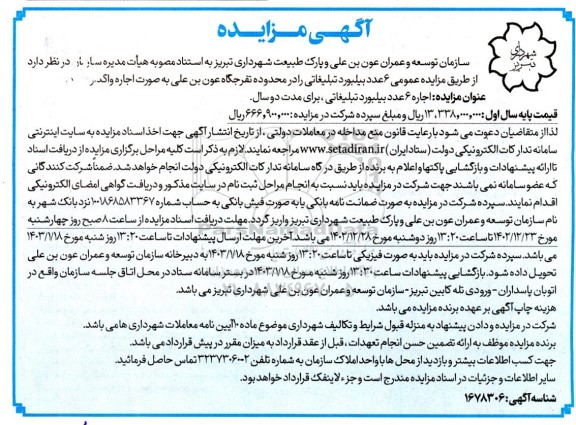 آگهی مزایده
شهرداری تبریز
سازمان توسعه و عمران عون بن علی و پارک طبیعت شهرداری تبریز به استناد مصوبه هیأت مدیره در نظر دارد
از طریق مزایده عمومی ۶ عدد بیلبورد تبلیغاتی را در محدوده تفرجگاه عون بن علی به صورت اجاره
عنوان مزایده: اجاره ۶ عدد بیلبورد تبلیغاتی، برای مدت دو سال.
قیمت پایه سال اول: ۱۳,۳۳۸,۰۰۰,۰۰۰ ریال و مبلغ سپرده شرکت در مزایده: ۶۶۶,۹۰۰,۰۰۰ ریال
لذا از متقاضیان دعوت می شود با رعایت قانون منع مداخله در معاملات دولتی، از تاریخ انتشار آگهی جهت اخذ اسناد مزایده به سایت اینترنتی
سامانه تدارکات الکترونیکی دولت (ستاد ایران) www.setadiran.ir مراجعه نمایند. لازم به ذکر است کلیه مراحل برگزاری مزایده از دریافت اسناد
تا ارائه پیشنهادات و بازگشایی پاکتها و اعلام به برنده از طریق درگاه سامانه تدارکات الکترونیکی دولت انجام خواهد شد. ضمناً شرکت کنندگانی
که عضو سامانه نمی باشند جهت شرکت در مزایده باید نسبت به انجام مراحل ثبت نام در سایت مذکور و دریافت گواهی امضای الکترونیکی
اقدام نمایند. سپرده شرکت در مزایده به صورت ضمانت نامه بانکی یا به صورت فیش بانکی به حساب شماره ۱۰۰۸۶۸۵۸۳۳۶۷ نزد بانک شهر به
نام سازمان توسعه و عمران عون بن علی و پارک طبیعت شهرداری تبریز واریز گردد. مهلت دریافت اسناد مزایده از ساعت ۸ صبح روز چهارشنبه
مورخ ۱۴۰۲/۱۲/۲۳ تا ساعت ۱۳:۲۰ روز دوشنبه مورخ ۱۴۰۲/۱۲/۲۸ می باشد. آخرین مهلت ارسال پیشنهادات تا ساعت ۱۳:۲۰ روز شنبه مورخ ۱۴۰۳/۱/۱۸
می باشد. سپرده شرکت در مزایده باید به صورت فیزیکی تا ساعت ۱۳:۲۰ روز شنبه مورخ ۱۴۰۳/۱/۱۸ به دبیرخانه سازمان توسعه و عمران عون بن علی
تحویل داده شود. بازگشایی پیشنهادات ساعت ۱۳:۳۰ روز شنبه مورخ ۱۴۰۳/۱/۱۸ در بستر سامانه ستاد در محل اتاق جلسه سازمان واقع در
اتوبان پاسداران - ورودی تله کابین تبریز - سازمان توسعه و عمران عون بن علی شهرداری تبریز می باشد.
هزینه چاپ آگهی بر عهده برنده مزایده می باشد.
شرکت در مزایده و دادن پیشنهاد به منزله قبول شرایط و تکالیف شهرداری موضوع ماده ۱۰ آیین نامه معاملات شهرداری ها می باشد.
برنده مزایده موظف به ارائه تضمین حسن انجام تعهدات، قبل از عقد قرارداد به میزان مقرر در پیش قرارداد می باشد.
جهت کسب اطلاعات بیشتر و بازدید از محل ها با واحد املاک سازمان به شماره تلفن ۳۲۳۷۳۰۶۰۰۲ تماس حاصل فرمائید.
سایر اطلاعات و جزئیات در اسناد مزایده مندرج است و جزء لاینفک قرارداد خواهد بود.
شناسه آگهی: ۱۶۷۸۳۰۶